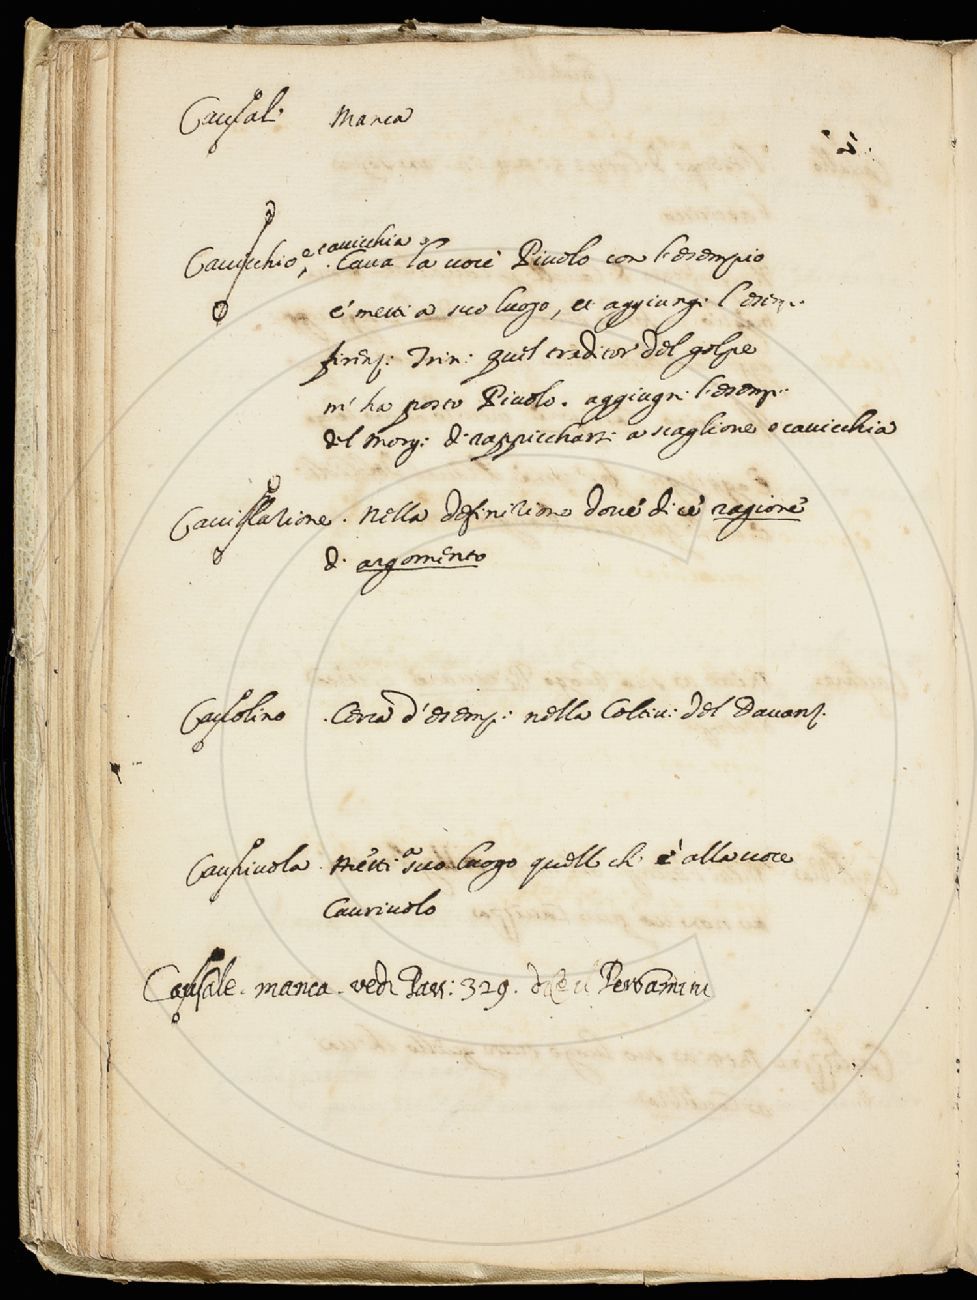 Causali Manca
Cauicchio, e cauicchia. Caua la uoce Piuolo con l'esempio
e' metti a suo luogo, et aggiungi l'esem.
firenz: Trin: quel traditor del golpe
m'ha posto Piuolo. aggiugni l'esemp:
del Morg: di rappiccharsi a scaglione o cauicchia
Cauillatione. Nella definitione doue dice ragione
di argomento
Cauolino. Cerca d'esemp: nella Coltiu: del Dauanz.
Metti a suo luogo quello ch' è alla uoce
Cauriuolo
Causale. manca. vedi Pass: 329. dice il Pergamini